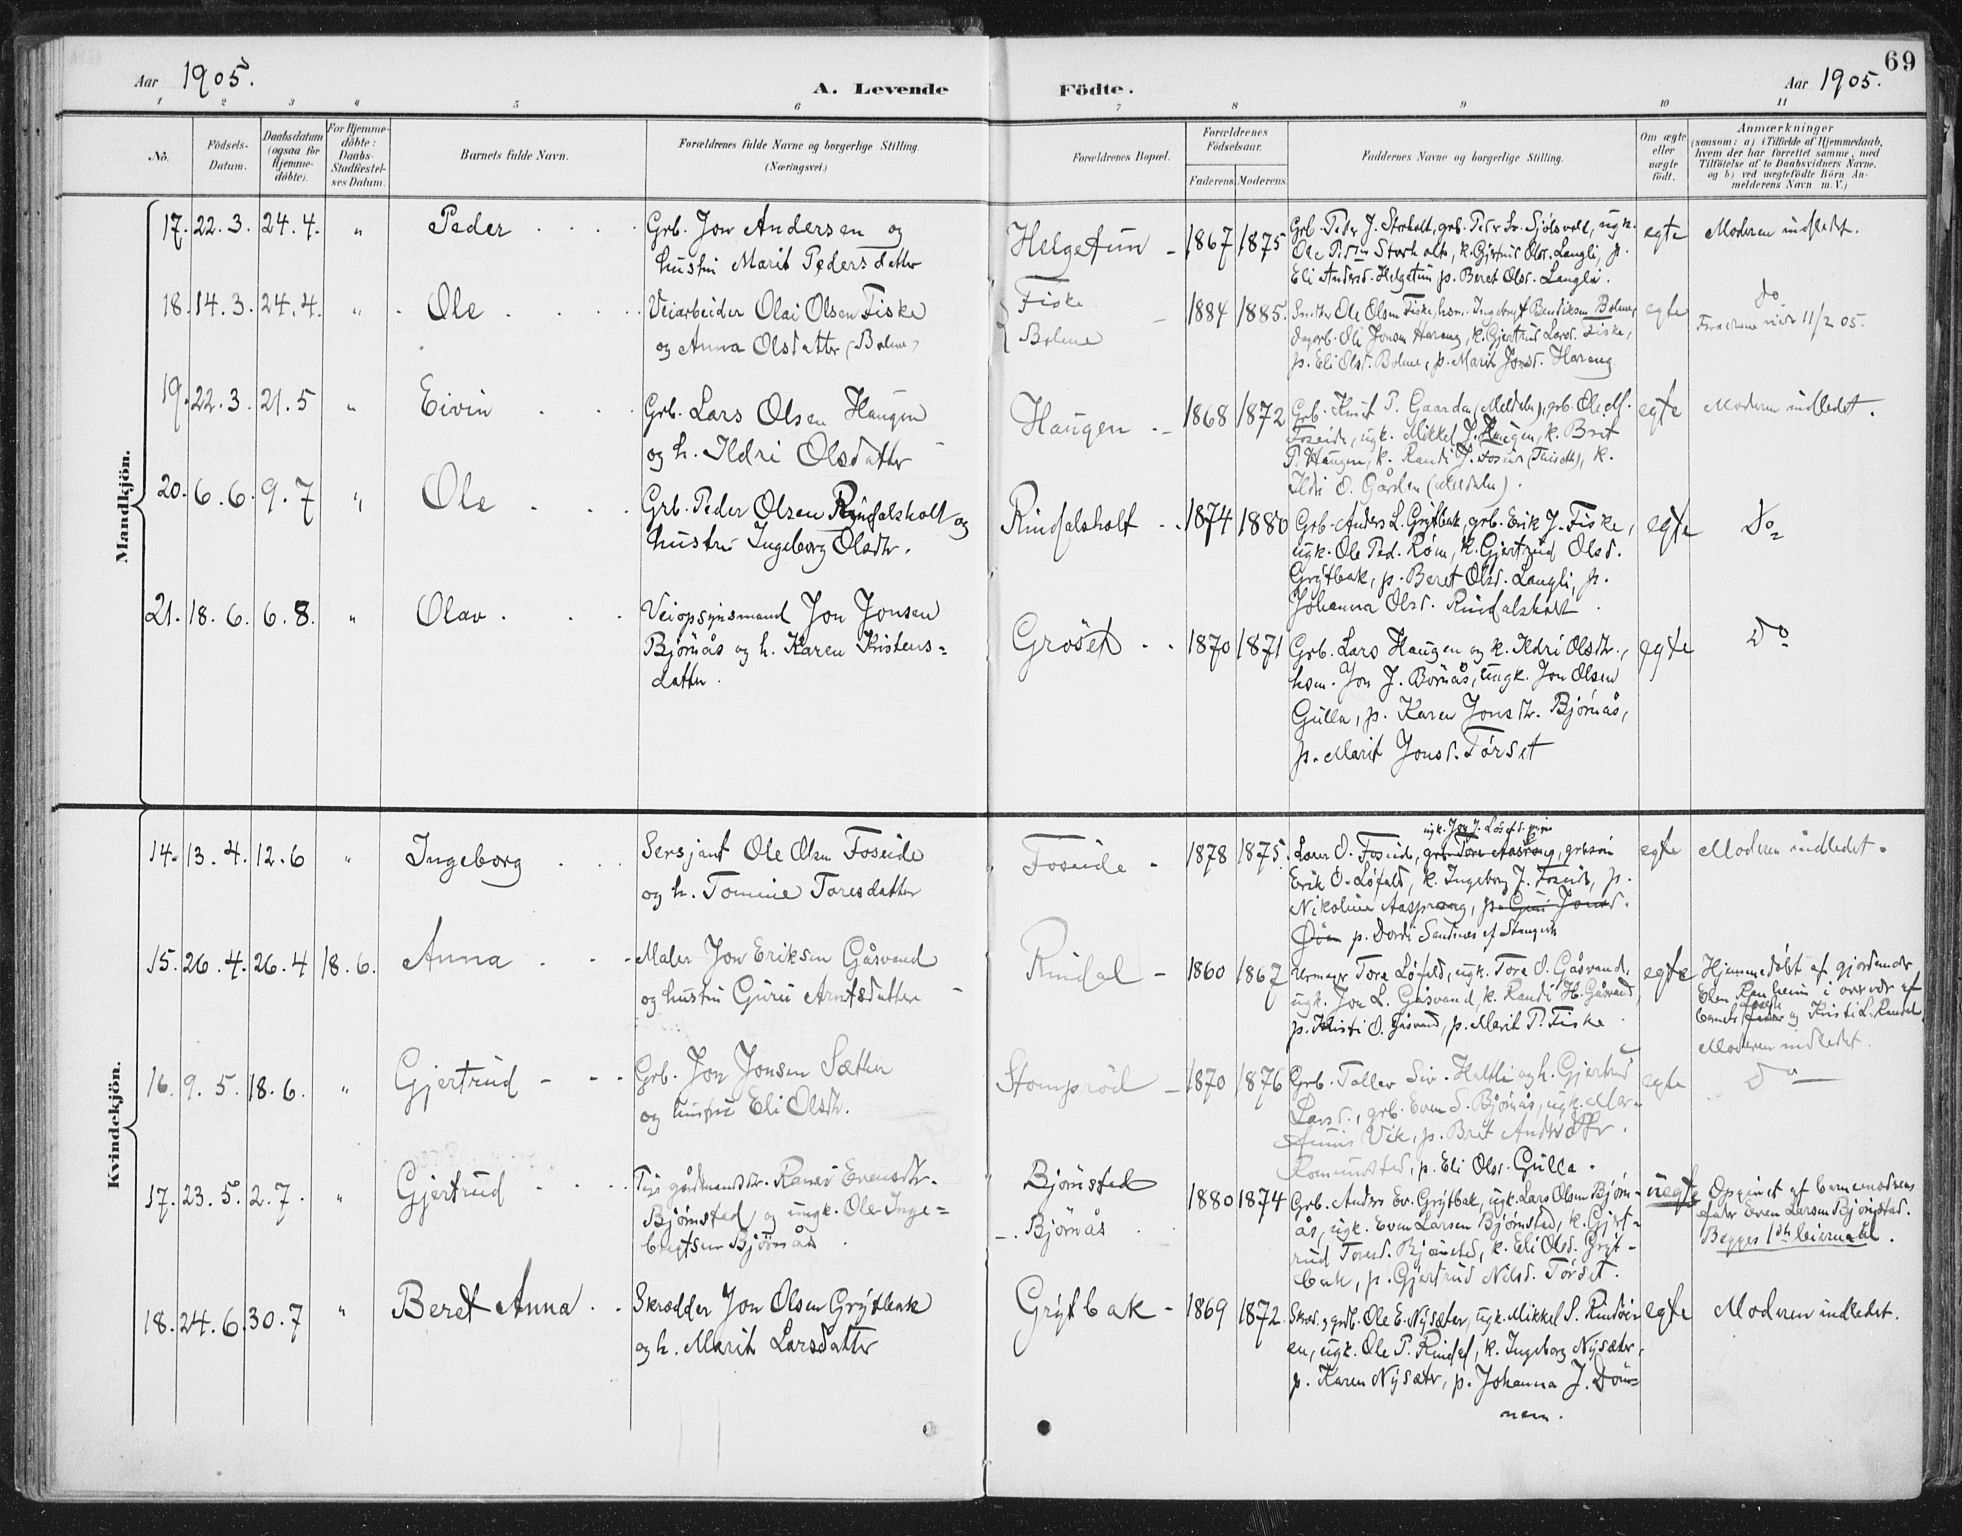 69
Aar 1905.
A. Levende Födte.
Aar 1905.
1 2 3 4 5 6 7 8 9 10 11
No.
Födsels-Datum.
Daabsdatum (ogsaa for Hjemme-döbte).
For Hjemme-döbte: Daabs-Stadfæstel-ses Datum.
Barnets fulde Navn.
Forældrenes fulde Navne og borgerlige Stilling. (Næringsvei.)
Forældrenes Bopæl.
Forældrenes Födselsaar.
Faderens. Moderens.
Faddernes Navne og borgerlige Stilling.
Om ægte eller uægte födt.
Anmærkninger
(saasom: a) i Tilfælde af Hjemmedaab,
hvem der har forrettet samme, med
Tilföielse af to Daabsvidners Navne,
og b) ved uægtefödte Börn An-
melderens Navn m. V.)
Mandkjön.
17. 22.3. 24.4. " Peder
Grb. Jon Andersen og
hustru Marit Pedersdatter
Helgetun 1867 1875
Grb. Peder J. Storholt, grb. Peder Sjølsvold, ugk.
Storholt, k. Gjertrud Olsd. Langli, p.
Eli Andersd. Helgetun, p. Beret Olsd. Langli.
egte
Moderen indledet.
18. 14.3. 24.4. " Ole
Veiarbeider Olai Olsen Fiske
og Anna Olsdatter (Bolme)
Fiske
Bolme
1884 1885.
Ole Olsen Fiske, hsm. Ingebrigt Bendiksen Bolme,
Jonsen Harang, k. Gjertrud Larsd. Fiske,
p. Eli Olsd. Bolme, p. Marit Jonsd. Harang
egte
do
11/2 05.
19. 22.3. 21.5 " Eivin
Grb. Lars Olsen Haugen
og h. Ildri Olsdatter
Haugen 1868 1872
Grb. Knut P. Gaarden (Meldalen), grb. Ole M.
Foseide, ugk. Mikkel J. Haugen, k. Brit
P. Haugen, k. Randi J.
Ildri O. Gården (Meldalen).
egte
Moderen indledet.
20. 6.6. 9.7 " Ole
Grb. Peder Olsen Rindalsholt og
hustru Ingeborg Olsdtr.
Rindalsholt 1874 1880
Grb. Anders L. Grytbak, grb. Erik J. Fiske,
ugk. Ole Ped. Røm, k. Gjertrud Olsd.
Grytbak, p. Beret Olsd. Langli, p.
Johanna Olsd. Rindalsholt.
egte
Do
21. 18.6. 6.8. " Olav
Veiopsynsmand Jon Jonsen
Bjørnås og h. Karen Kristens=
datter.
Grøset 1870 1871
Grb. Lars Haugen og k. Ildri Olsdtr.,
hsm. Jon J. Børnås, ungk. Jon Olsen
Gulla, p. Karen Jonsdtr. Bjørnås,
p. Marit Jonsd. Tørset
egte
Do
Kvindekjön.
14. 13.4. 12.6 " Ingeborg
Sersjant Ole Olsen Foseide
og h. Tomine Toresdatter
Foseide 1878 1875.
ugk. Jon J.
O. Foseide, grb. Tore Aasprong,
Erik O. Løfald, k. Ingeborg J. Foseide, p.
Nikoline Aasprong, p. Guri Jonsd.
p. Dordi Sandnes af Stangvik
egte
Moderen indledet.
15. 26.4. 26.4 18.6. Anna
Maler Jon Eriksen Gåsvand
og hustru Guru Arntsdatter
Rindal 1860 1867
Urmager Tore Løfald, ugk. Tore O. Gåsvand,
ugk. Jon L. Gåsvand, k. Randi H. Gåsvand,
p. Kristi O. Gåsvand, p. Marit P. Fiske
egte
Hjemmedøbt af gjordemor
Elen Ranheim i overvær af
barnets fader og Kristi L. Rindal
Moderen indledet.
16. 9.5. 18.6. " Gjertrud
Grb. Jon Jonsen Sæther
og hustru Eli Olsdtr.
Stomprød 1870 1876
Grb. Tollev Siv. Heltli og h. Gjertrud
Larsd., grb. Even S. Bjørnås, ugk. Mar-
Vik, p. Bret
Romundstad, p. Eli Olsd. Gulla.
egte
Do
17. 23.5. 2.7. " Gjertrud
Pige gårdmandsdtr. Ranei Evensdtr.
Bjørnstad, og ungk. Ole Inge=
brigtsen Bjørnås.
Bjørnstad
Bjørnås
1880 1874
Grb. Anders Ev. Grytbak, ugk. Lars Olsen Bjørn-
ås, ugk. Even Larsen Bjørnstad, k. Gjert-
rud Toresd. Bjørnstad, k. Eli Olsd. Gryt-
bak, p. Gjertrud Nilsd. Tørset.
uegte
Opgivet af barnemoderens
fader Even Larsen Bjørnstad.
Begges 1ste leiermaal.
18. 24.6. 30.7 " Beret Anna
Skrædder Jon Olsen Grytbak
og h. Marit Larsdatter
Grytbak 1869 1872.
Skræd. Ole E. Nysæter, ugk. Mikkel S. Rindøi-
en, ugk. Ole P. Rindal, k. Ingeborg Nysæter,
p. Karen Nysæter, p. Johanna J. Dön-
nem.
egte
Moderen indledet.